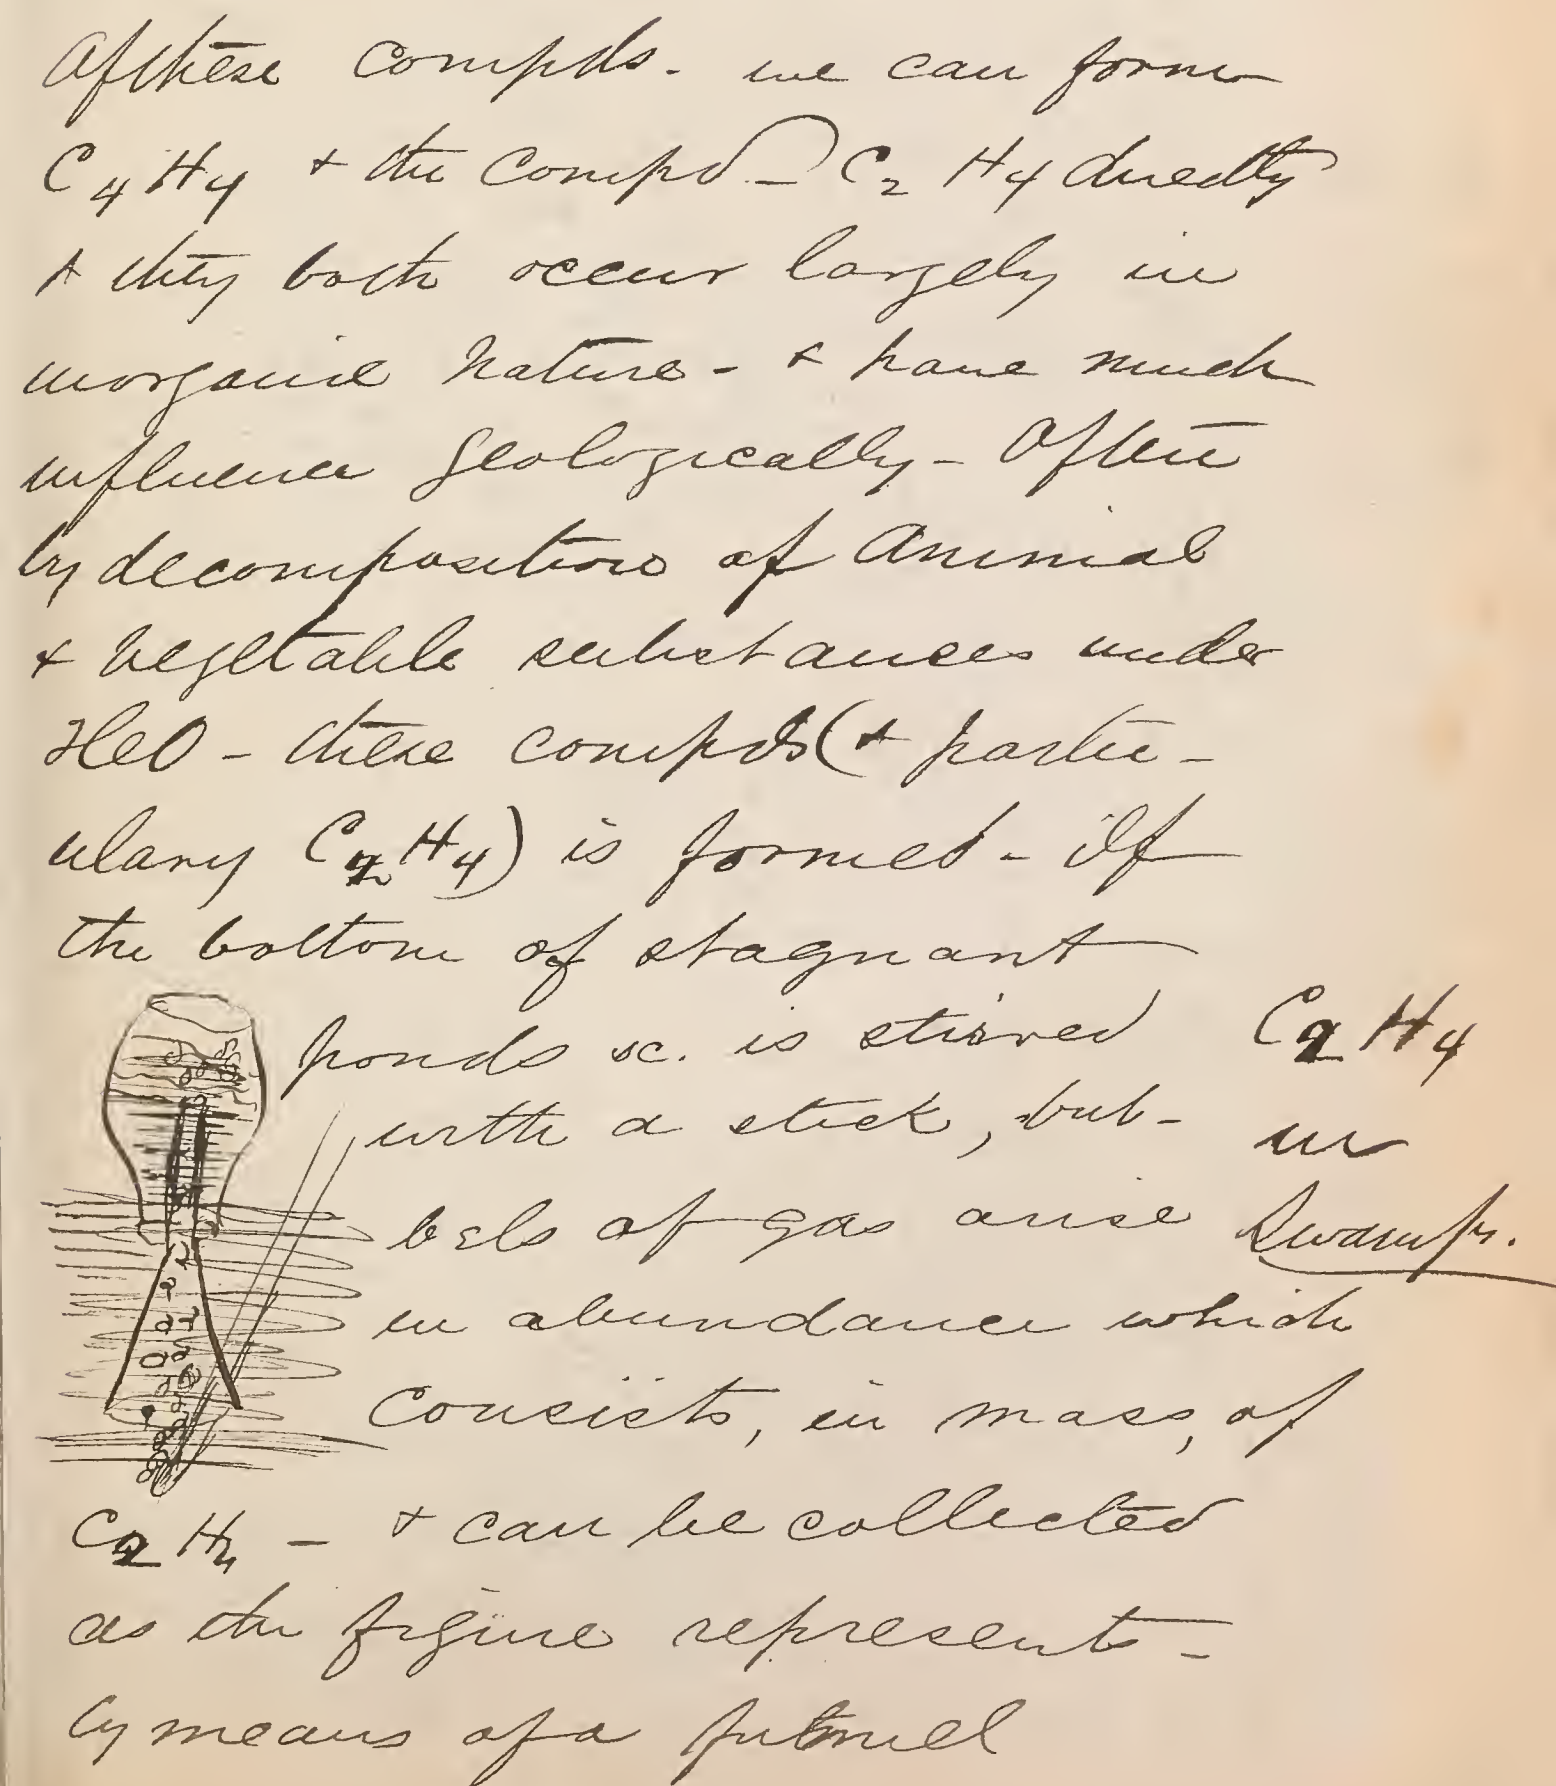 Of these compds. we can form
C4H4 + the compd - C2H4 directly
+ they both occur largely in
inorganic nature - + have much
influence geologically - Often
by decomposition of Animal
+ vegetable substances under
HO - these compds (+ partic-
ulary C2H4) is formed - If
the bottom of stagnant
ponds &c. is stirred
with a stick, bub-
bels of gas arise
in abundance which
consists, in mass, of
C2H4 - + can be collected
as the figure represents -
by means of a funnel
C2H4
in
Swamps.